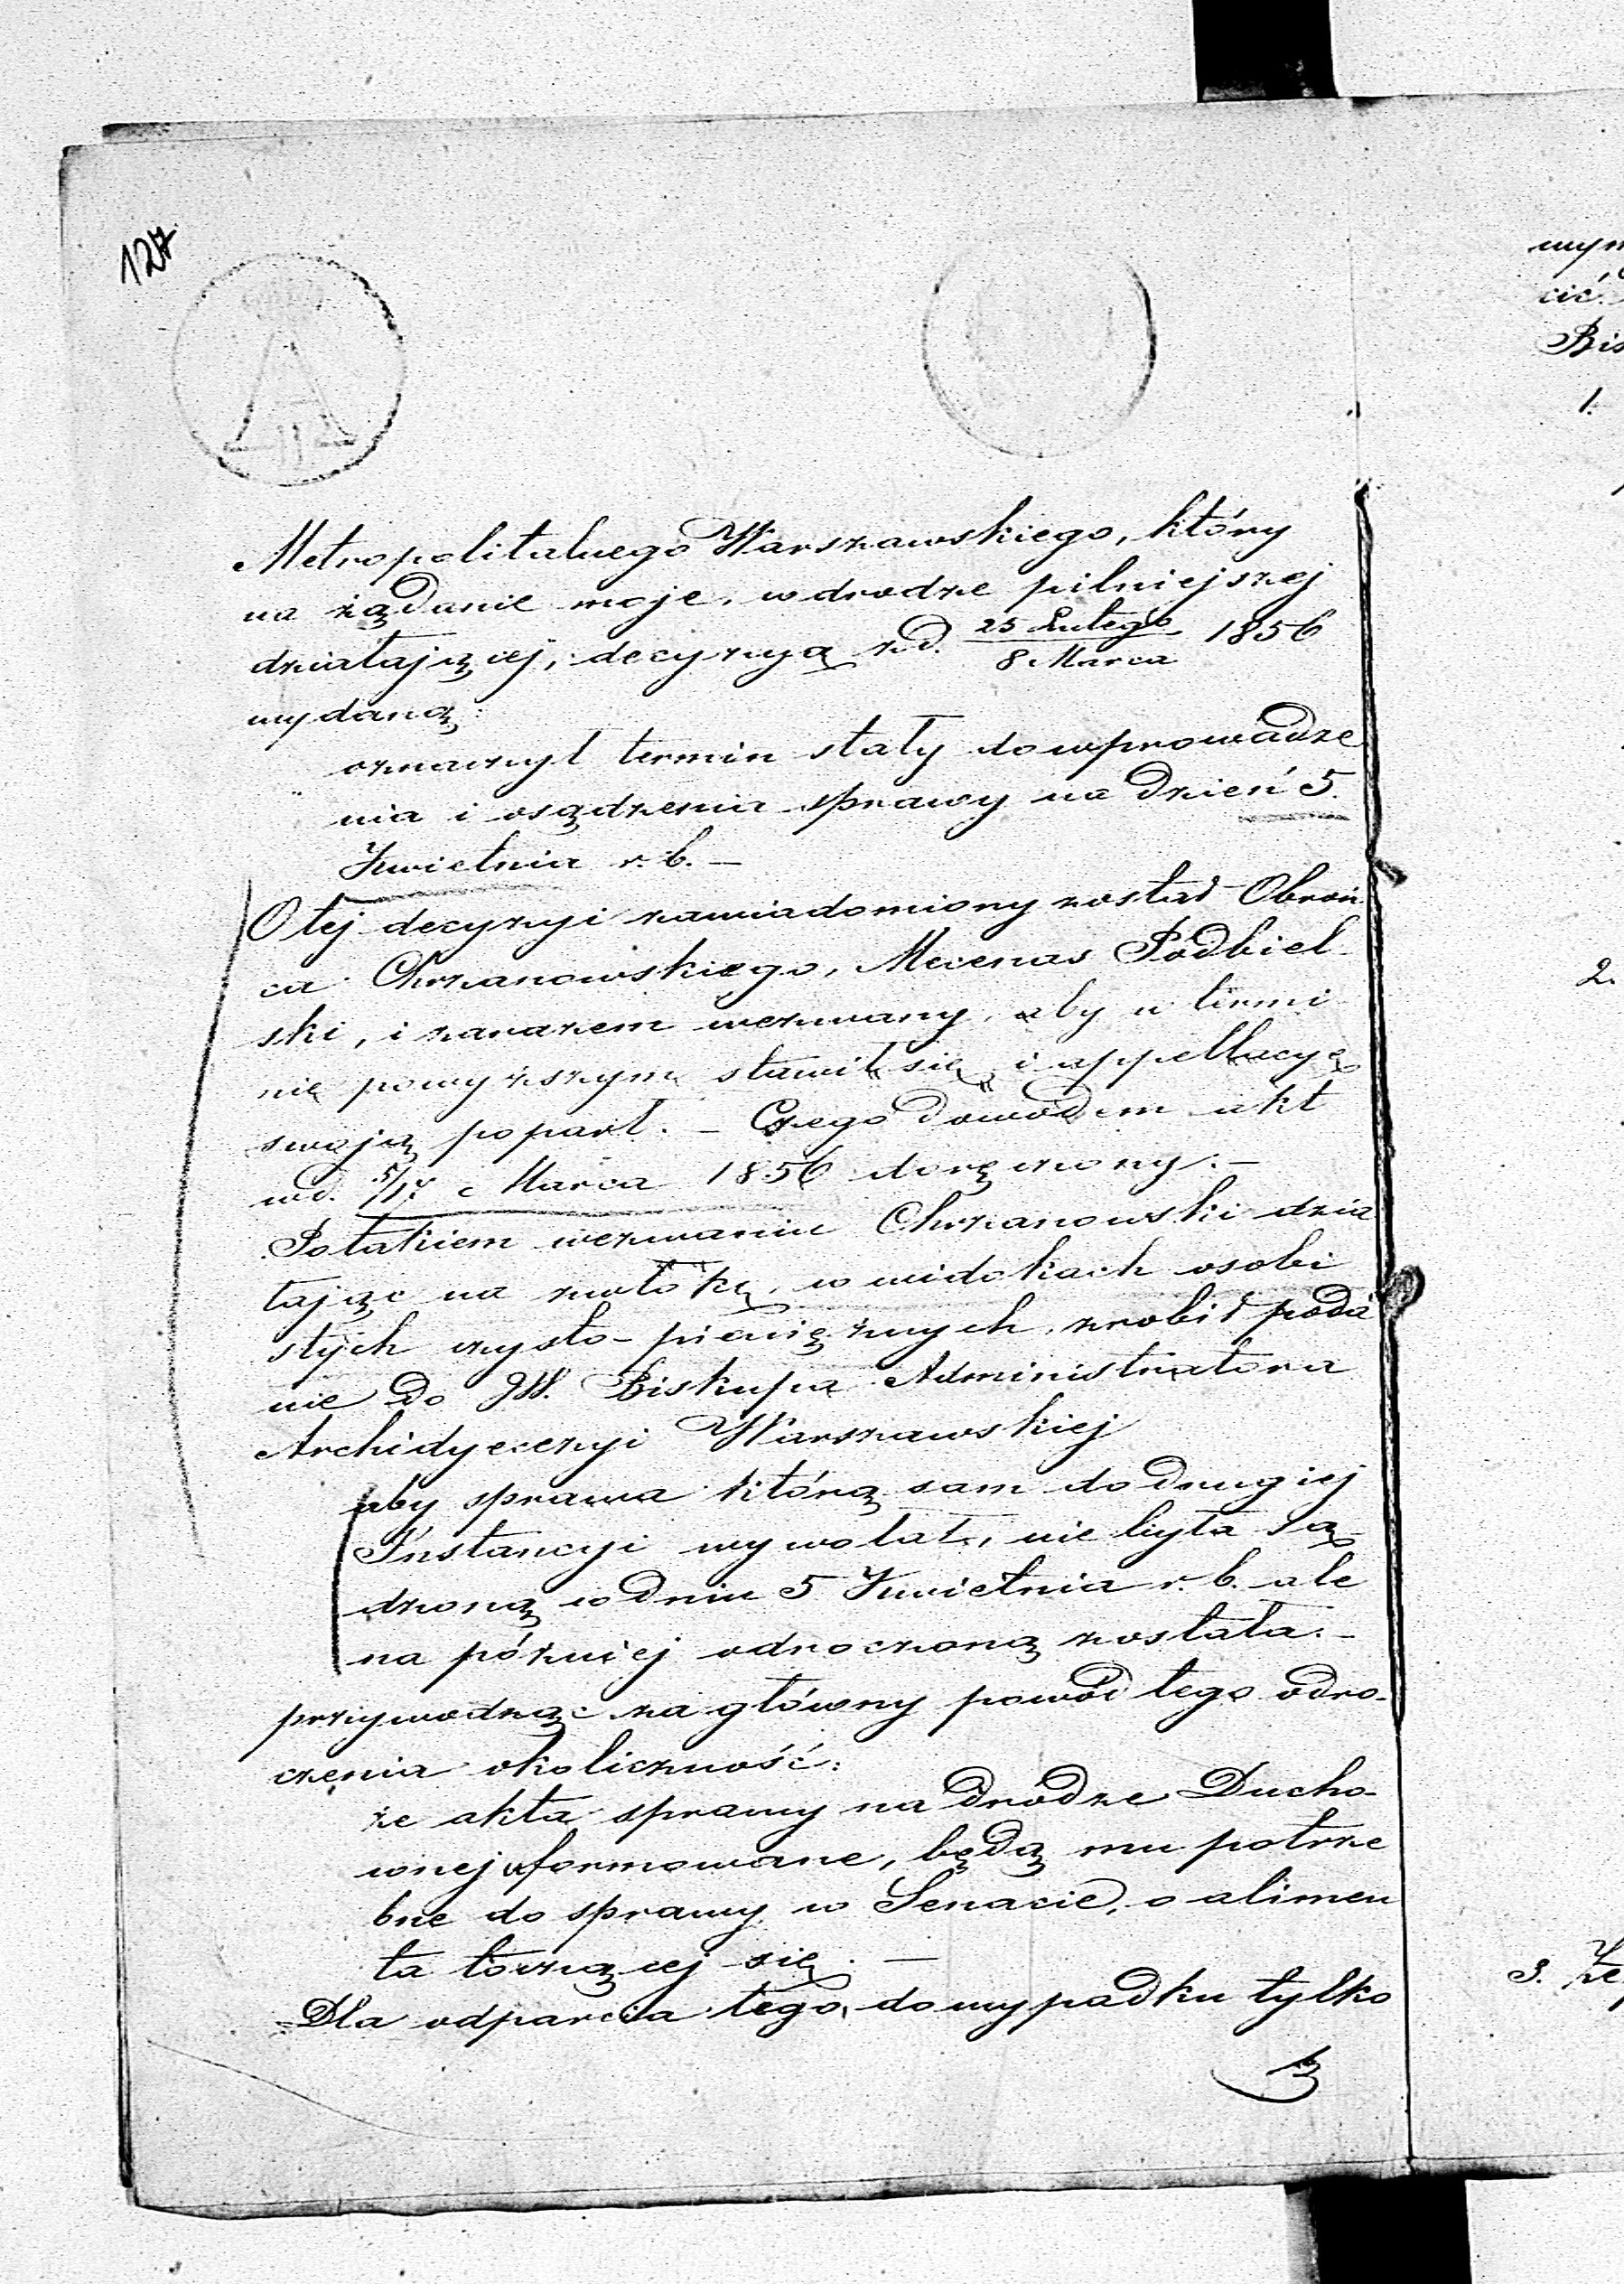 127
Metropolitalnego Warszawskiego, który
na żądanie moje, w drodze pilniejszej
działającej, decyzyą z d. 25 Lutego / 8 Marca 1856
wydaną:
oznaczył termin stały do wprowadze
nia i osądzenia sprawy na dzień 5.
Kwietnia r. b. —
O tej decyzyi zawiadomiony został Obroń-
ca Chrzanowskiego, Mecenas Podbiel-
ski, i zarazem wezwany, aby w termi
nie powyższym stawił się i appellacyę
swoją poparł. — Czego dowodem akt
w d. 5/17 Marca 1856 doręczony. —
Po takiem wezwaniu Chrzanowski dzia
łając na zwłokę, w widokach osobi
stych czysto-pieniężnych, zrobił poda
nie do JW. Biskupa Administratora
Archidyecezyi Warszawskiej
aby sprawa którą sam do drugiej
Instancyi wywołał, nie była są
dzoną w dniu 5 Kwietnia r. b. ale
na później odroczoną została. —
przywodząc za główny powód tego odro-
czenia okoliczność:
że akta sprawy na drodze Ducho-
wnej uformowane, będą mu potrze
bne do sprawy w Senacie, o alimen
ta toczącej się. —
Dla odparcia tego, do wypadku tylko
wym
cić.
Bis
1.
2.
3. Że